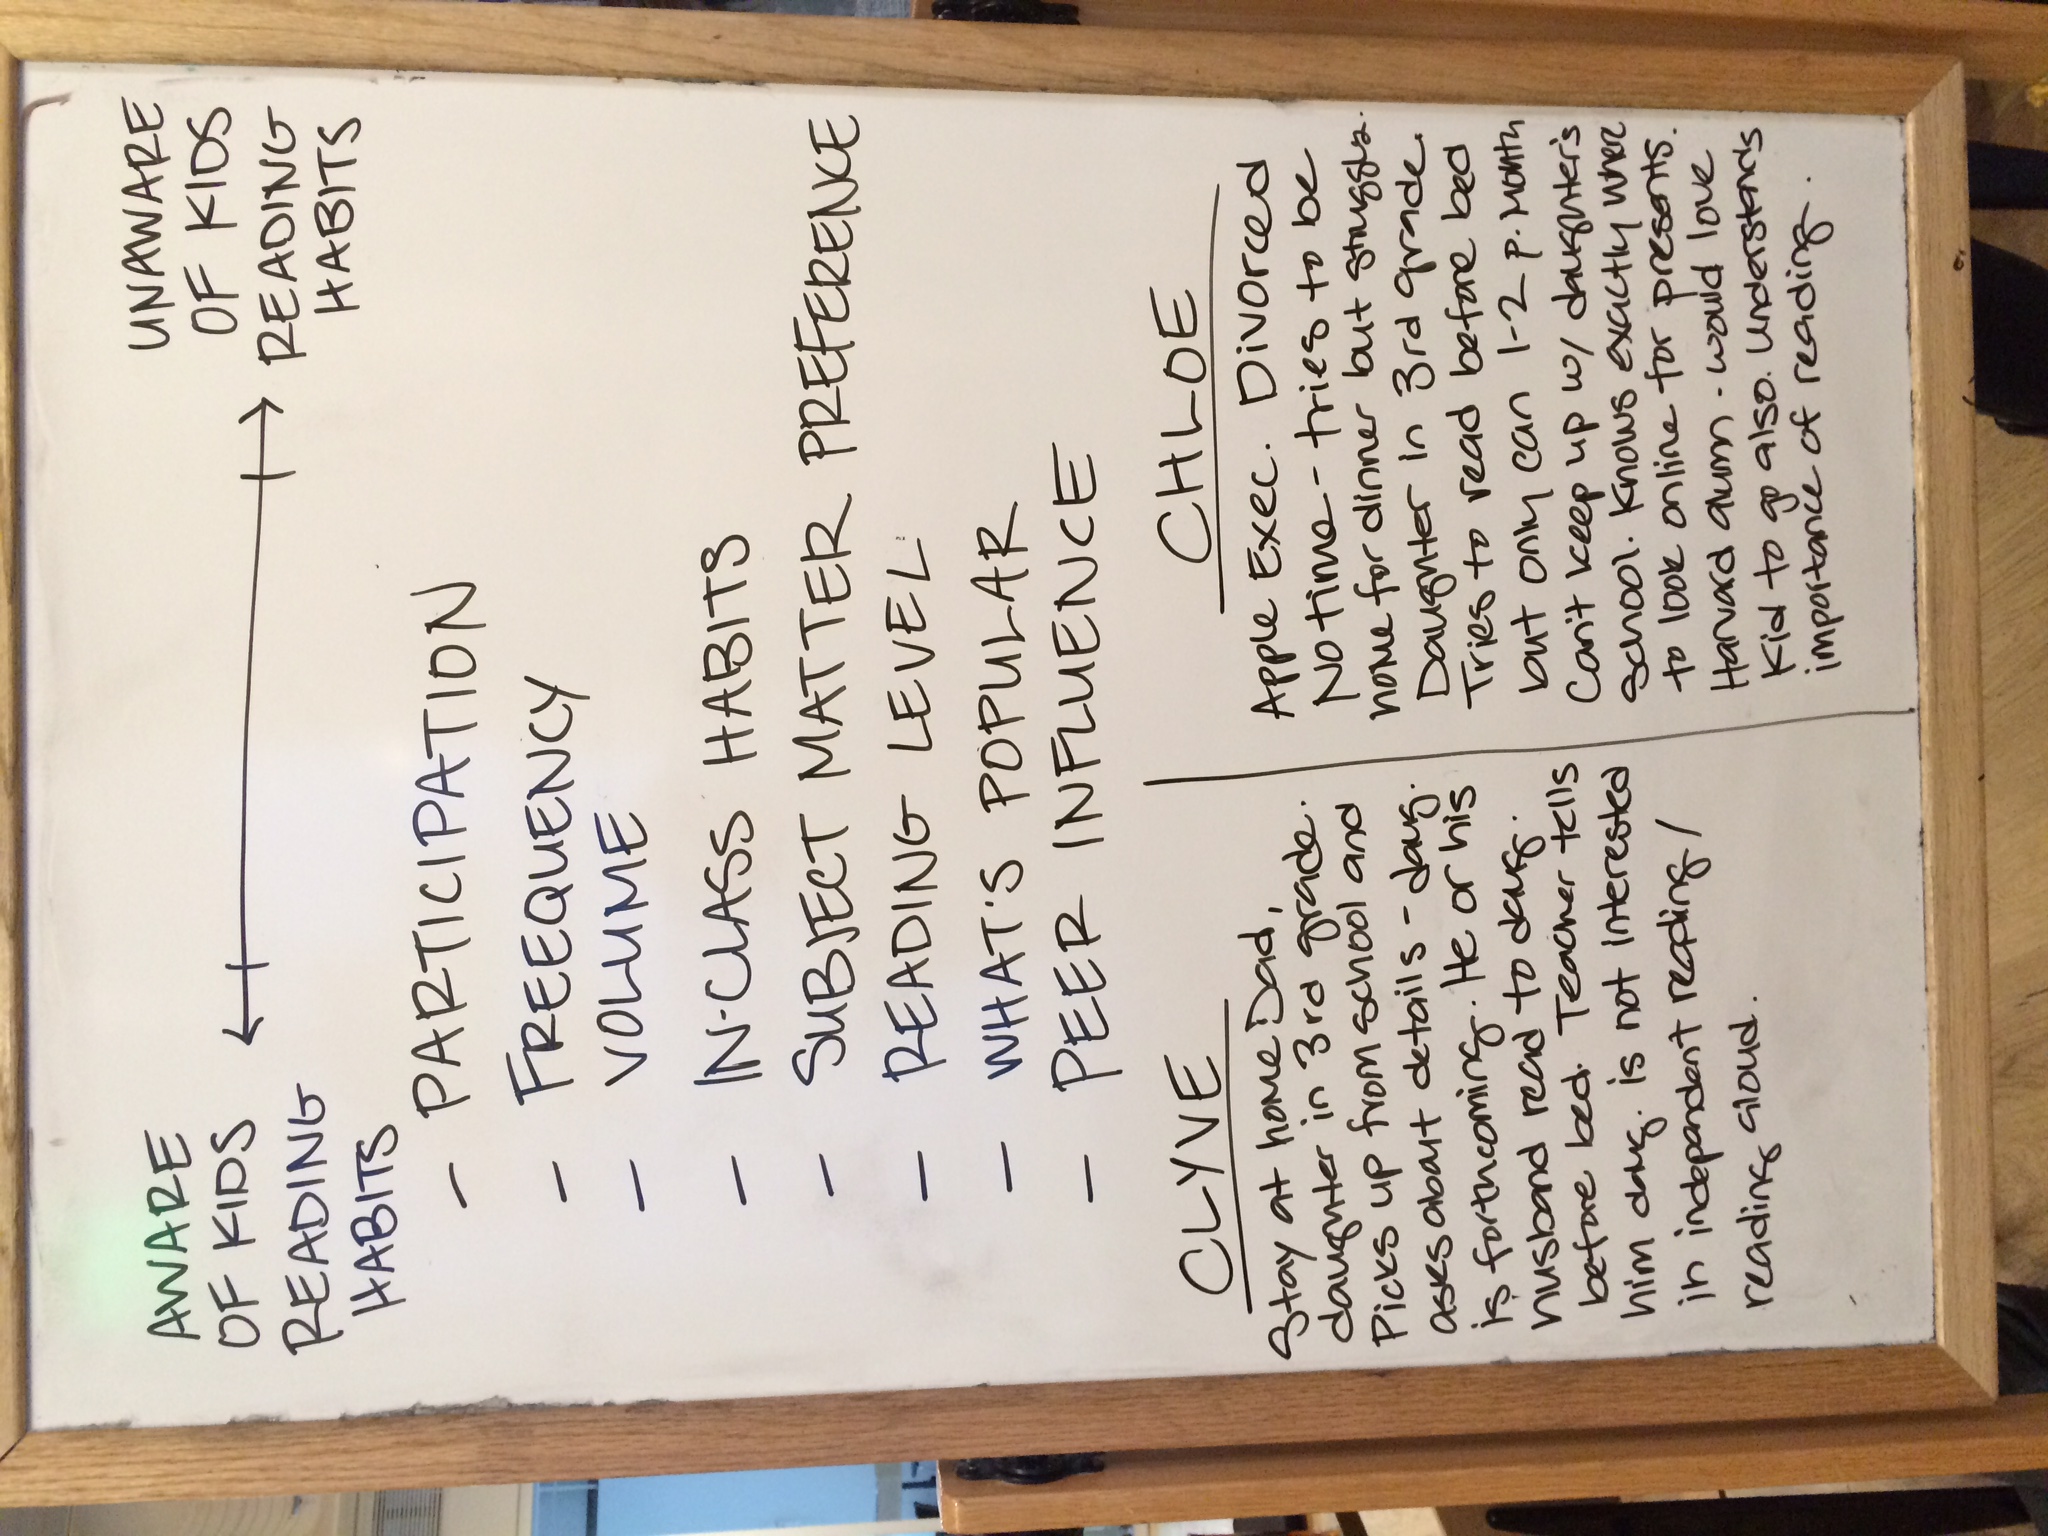 AWARE
OF KIDS
READING
HABITS
UNAWARE
OF KIDS
READING
HABITS
- PARTICIPATION
- FREEQUENCY
- VOLUME
- IN-CLASS HABITS
- SUBJECT MATTER PREFERENCE
- READING LEVEL
- WHAT'S POPULAR
- PEER INFLUENCE
CLYVE
Stay at home Dad,
daughter in 3rd grade.
Picks up from school and
asks about details - daug.
is forthcoming. He or his
husband read to daug.
before bed. Teacher tells
him daug. is not interested
in independent reading/
reading aloud.
CHLOE
Apple Exec. Divorced
No time - tries to be
home for dinner but struggles.
Daughter in 3rd grade.
Tries to read before bed
but only can 1-2 p. Month
Can't keep up w/ daughter's
school. Knows exactly where
to look online for presents.
Harvard alumn - would love
kid to go also. Understands
importance of reading.